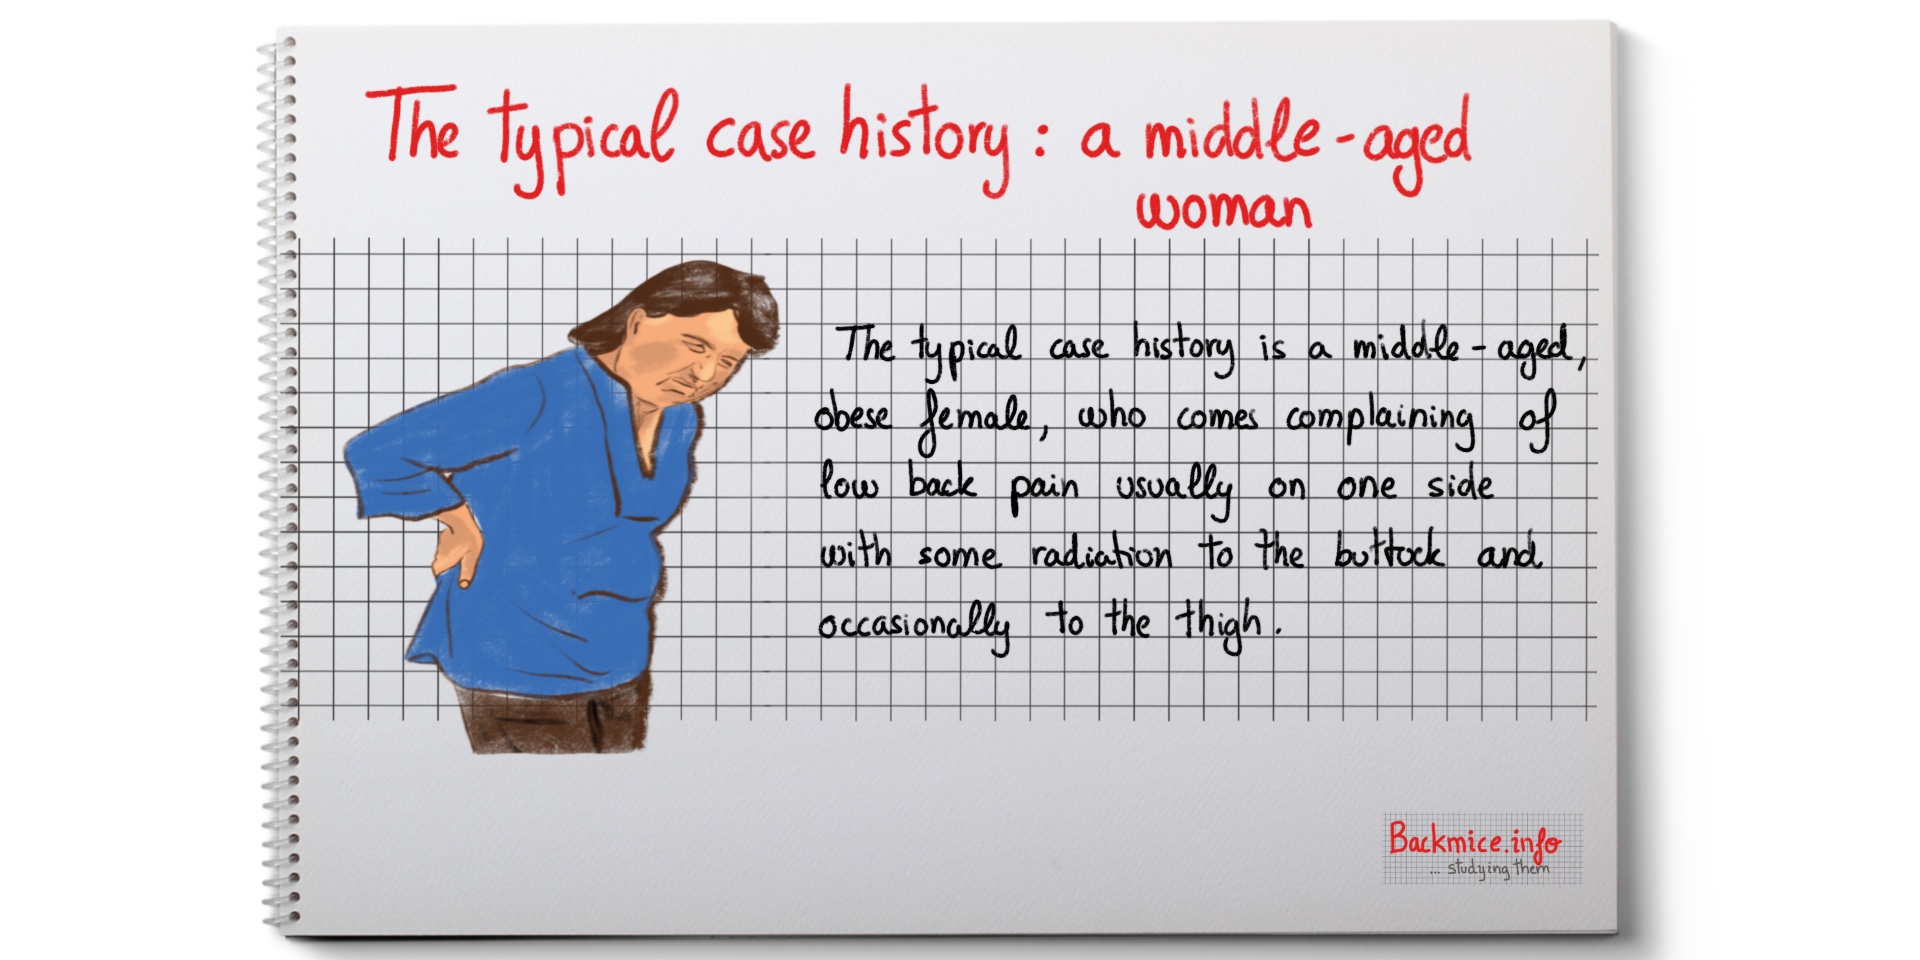 The typical case history : a middle-aged
woman
The typical case history is a middle-aged,
obese female, who comes complaining of
low back pain usually on one side
with some radiation to the buttock and
occasionally to the thigh.
Backmice.info
... studying them